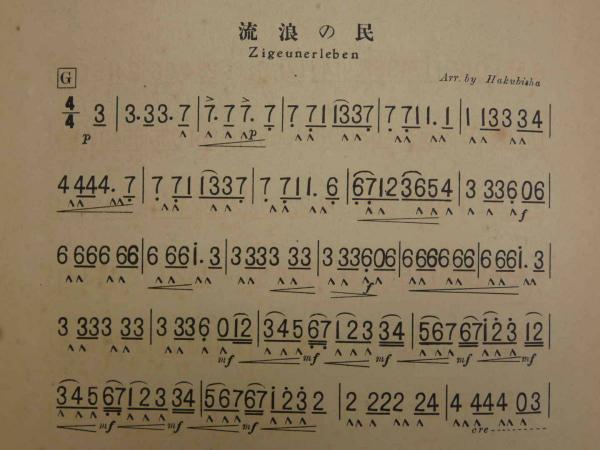 流浪の民
Zigeunerleben
G
Arr. by Hakubisha
4/4 p 3 | 3. 33. 7 | 7. 7 7. p 7 | 7 71 1337 | 7 711. 1 | 1 133 34 |
4 444. 7 | 7 71 1337 | 7 711. 6 | 6712 3654 | 3 336 06 f |
6 666 66 | 6 661. 3 | 3 333 33 | 3 33606 | 6666666 | 6 661. 3 |
3 333 33 | 3 336 012 mf | 345 67 mf 123 34 mf | 567 67 mf 123 12 mf |
345 67 mf 123 34 mf | 567 67 mf 1232 | 2 222 24 | 4 444 03 | cre